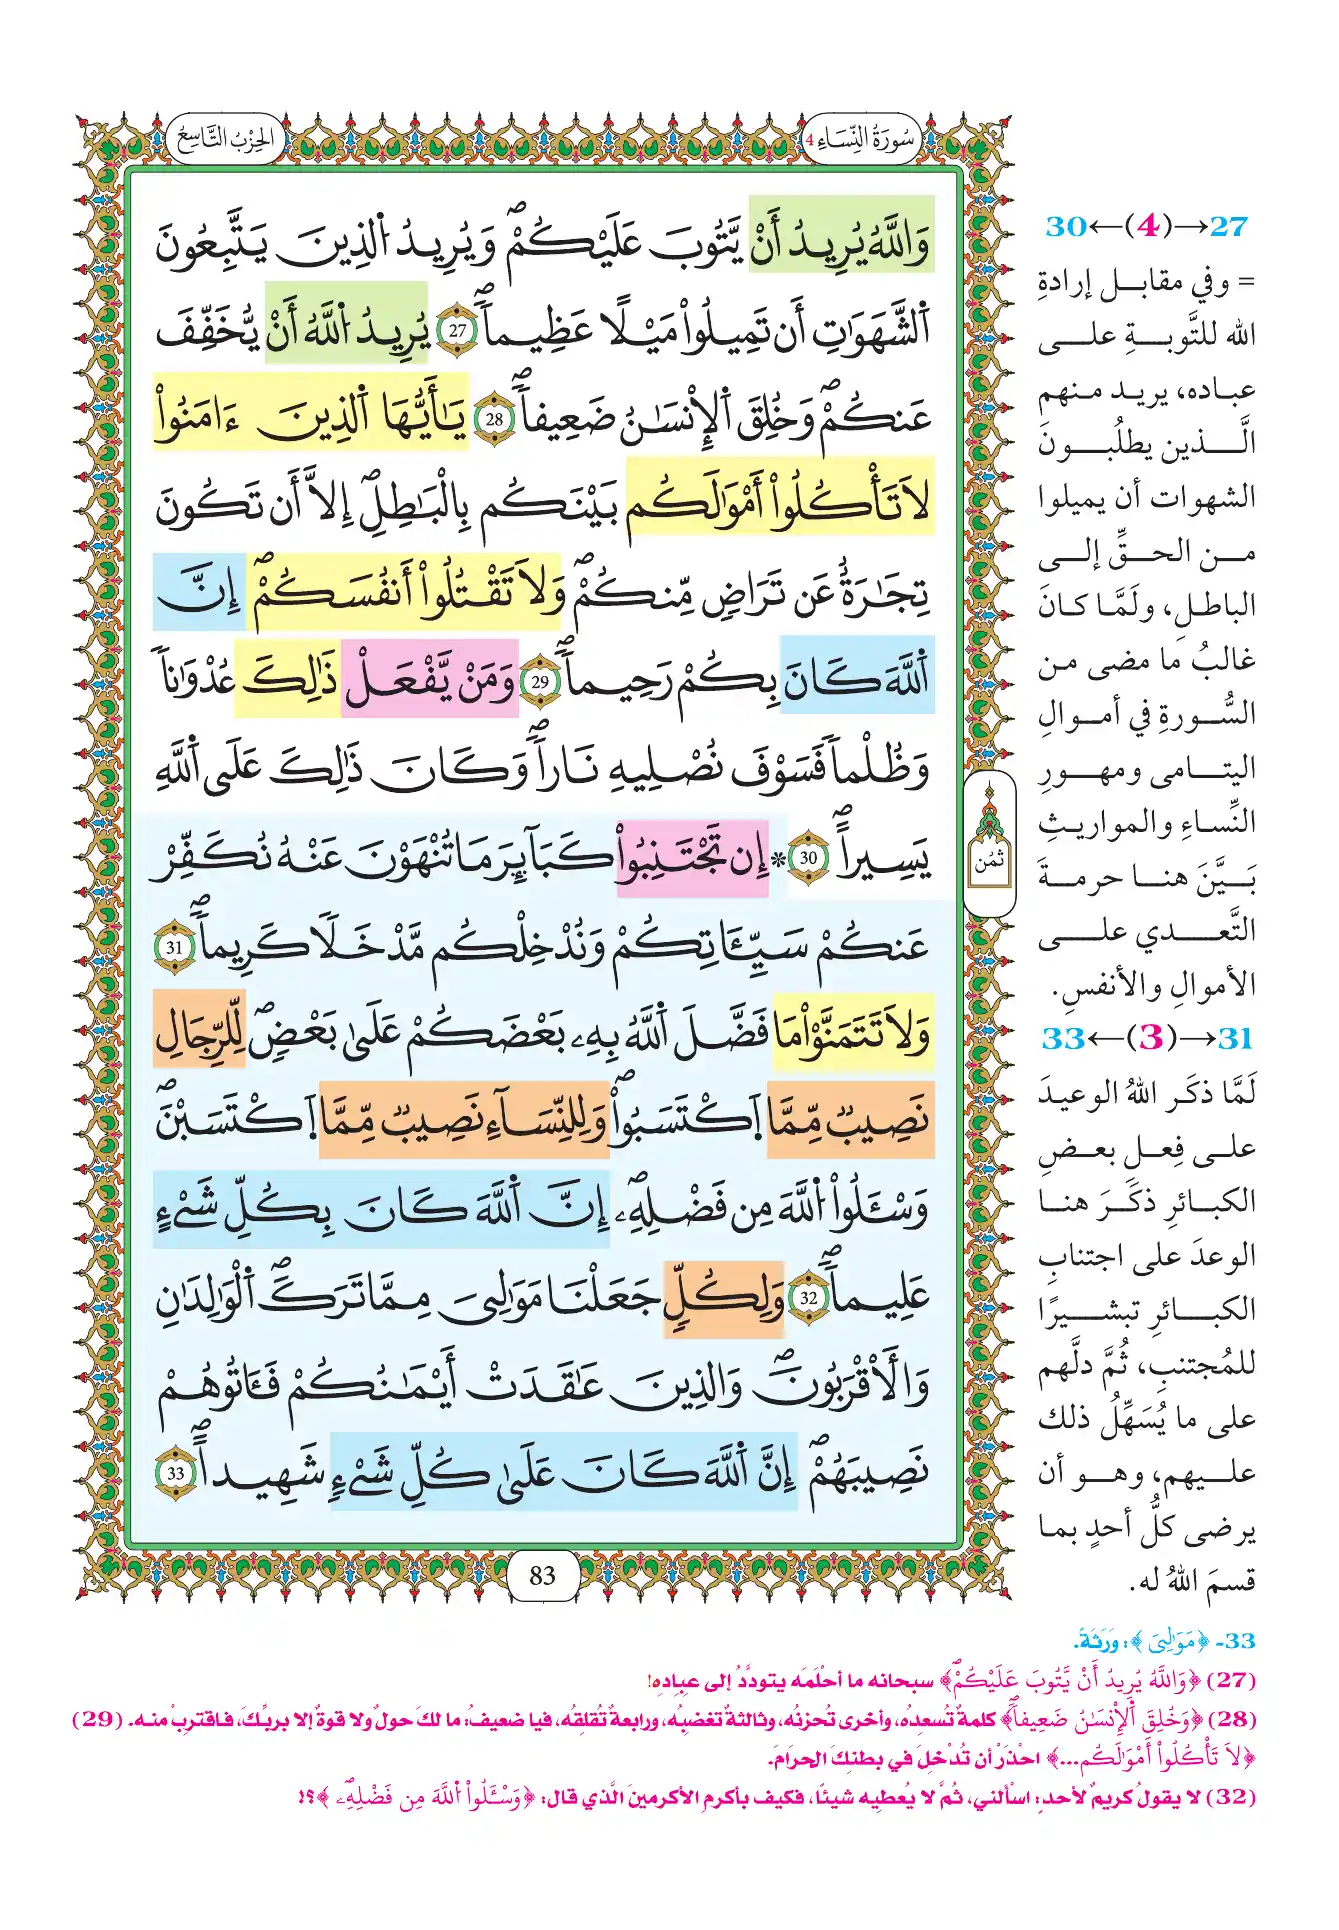 سُورَةُ النِّسَاءِ 4
الحِزْبُ التَّاسِعُ
وَاللَّهُ يُرِيدُ أَنْ يَّتُوبَ عَلَيْكُمْ وَيُرِيدُ الذِينَ يَتَّبِعُونَ
الشَّهَوَٰتِ أَن تَمِيلُواْ مَيْلًا عَظِيماً 27 يُرِيدُ اللَّهُ أَنْ يُّخَفِّفَ
عَنكُمْ وَخُلِقَ الِانسَٰنُ ضَعِيفاً 28 يَٰأَيُّهَا الذِينَ ءَامَنُواْ
لَا تَأْكُلُواْ أَمْوَٰلَكُم بَيْنَكُم بِالْبَٰطِلِ إِلَّا أَن تَكُونَ
تِجَٰرَةٌ عَن تَرَاضٍ مِّنكُمْ وَلَا تَقْتُلُواْ أَنفُسَكُمْ إِنَّ
اللَّهَ كَانَ بِكُمْ رَحِيماً 29 وَمَنْ يَّفْعَلْ ذَٰلِكَ عُدْوَٰناً
وَظُلْماً فَسَوْفَ نُصْلِيهِ نَاراً وَكَانَ ذَٰلِكَ عَلَى اللَّهِ
يَسِيراً 30 * إِن تَجْتَنِبُواْ كَبَآئِرَ مَا تُنْهَوْنَ عَنْهُ نُكَفِّرْ
عَنكُمْ سَيِّـَٔاتِكُمْ وَنُدْخِلْكُم مَّدْخَلًا كَرِيماً 31
وَلَا تَتَمَنَّوْاْ مَا فَضَّلَ اللَّهُ بِهِۦ بَعْضَكُمْ عَلَىٰ بَعْضٍ لِّلرِّجَالِ
نَصِيبٌ مِّمَّا اَكْتَسَبُواْ وَلِلنِّسَآءِ نَصِيبٌ مِّمَّا اَكْتَسَبْنَ
وَسْـَٔلُواْ اللَّهَ مِن فَضْلِهِۦ إِنَّ اللَّهَ كَانَ بِكُلِّ شَيْءٍ
عَلِيماً 32 وَلِكُلٍّ جَعَلْنَا مَوَٰلِيَ مِمَّا تَرَكَ الْوَٰلِدَٰنِ
وَالْأَقْرَبُونَ وَالذِينَ عَٰقَدَتْ أَيْمَٰنُكُمْ فَـَٔاتُوهُمْ
نَصِيبَهُمْ إِنَّ اللَّهَ كَانَ عَلَىٰ كُلِّ شَيْءٍ شَهِيداً 33
ثمُن
83
27→(4)←30
= وفي مقابل إرادةِ
الله للتَّوبةِ على
عباده، يريد منهم
الَّذين يطلُبونَ
الشهوات أن يميلوا
من الحقِّ إلى
الباطلِ، ولَمَّا كانَ
غالبُ ما مضى من
السُّورةِ في أموالِ
اليتامى ومهورِ
النِّساءِ والمواريثِ
بَيَّنَ هنا حرمةَ
التَّعدي على
الأموالِ والأنفسِ.
31→(3)←33
لَمَّا ذكَر اللهُ الوعيدَ
على فِعلِ بعضِ
الكبائرِ ذكَرَ هنا
الوعدَ على اجتنابِ
الكبائرِ تبشيرًا
للمُجتنبِ، ثُمَّ دلَّهم
على ما يُسَهِّلُ ذلك
عليهم، وهو أن
يرضى كلُّ أحدٍ بما
قسمَ اللهُ له.
33- ﴿مَوَٰلِيَ﴾: وَرَثَةً.
(27) ﴿وَاللَّهُ يُرِيدُ أَنْ يَّتُوبَ عَلَيْكُمْ﴾ سبحانه ما أحْلَمَه يتودَّدُ إلى عبادِهِ!
(28) ﴿وَخُلِقَ الِانسَٰنُ ضَعِيفاً﴾ كلمةٌ تُسعدُه، وأخرى تُحزنُه، وثالثةٌ تغضبُه، ورابعةٌ تُقلِقُه، فيا ضعيفُ: ما لكَ حولٌ ولا قوةٌ إلا بربِّكَ، فاقتربْ منه. (29)
﴿لَا تَأْكُلُواْ أَمْوَٰلَكُم...﴾ احْذَرْ أن تُدْخِلَ في بطنِكَ الحرَامَ.
(32) لا يقولُ كريمٌ لأحدٍ: اسأَلني، ثُمَّ لا يُعطيه شيئًا، فكيف بأكرمِ الأكرمينَ الَّذي قال: ﴿وَسْـَٔلُواْ اللَّهَ مِن فَضْلِهِۦ﴾؟!